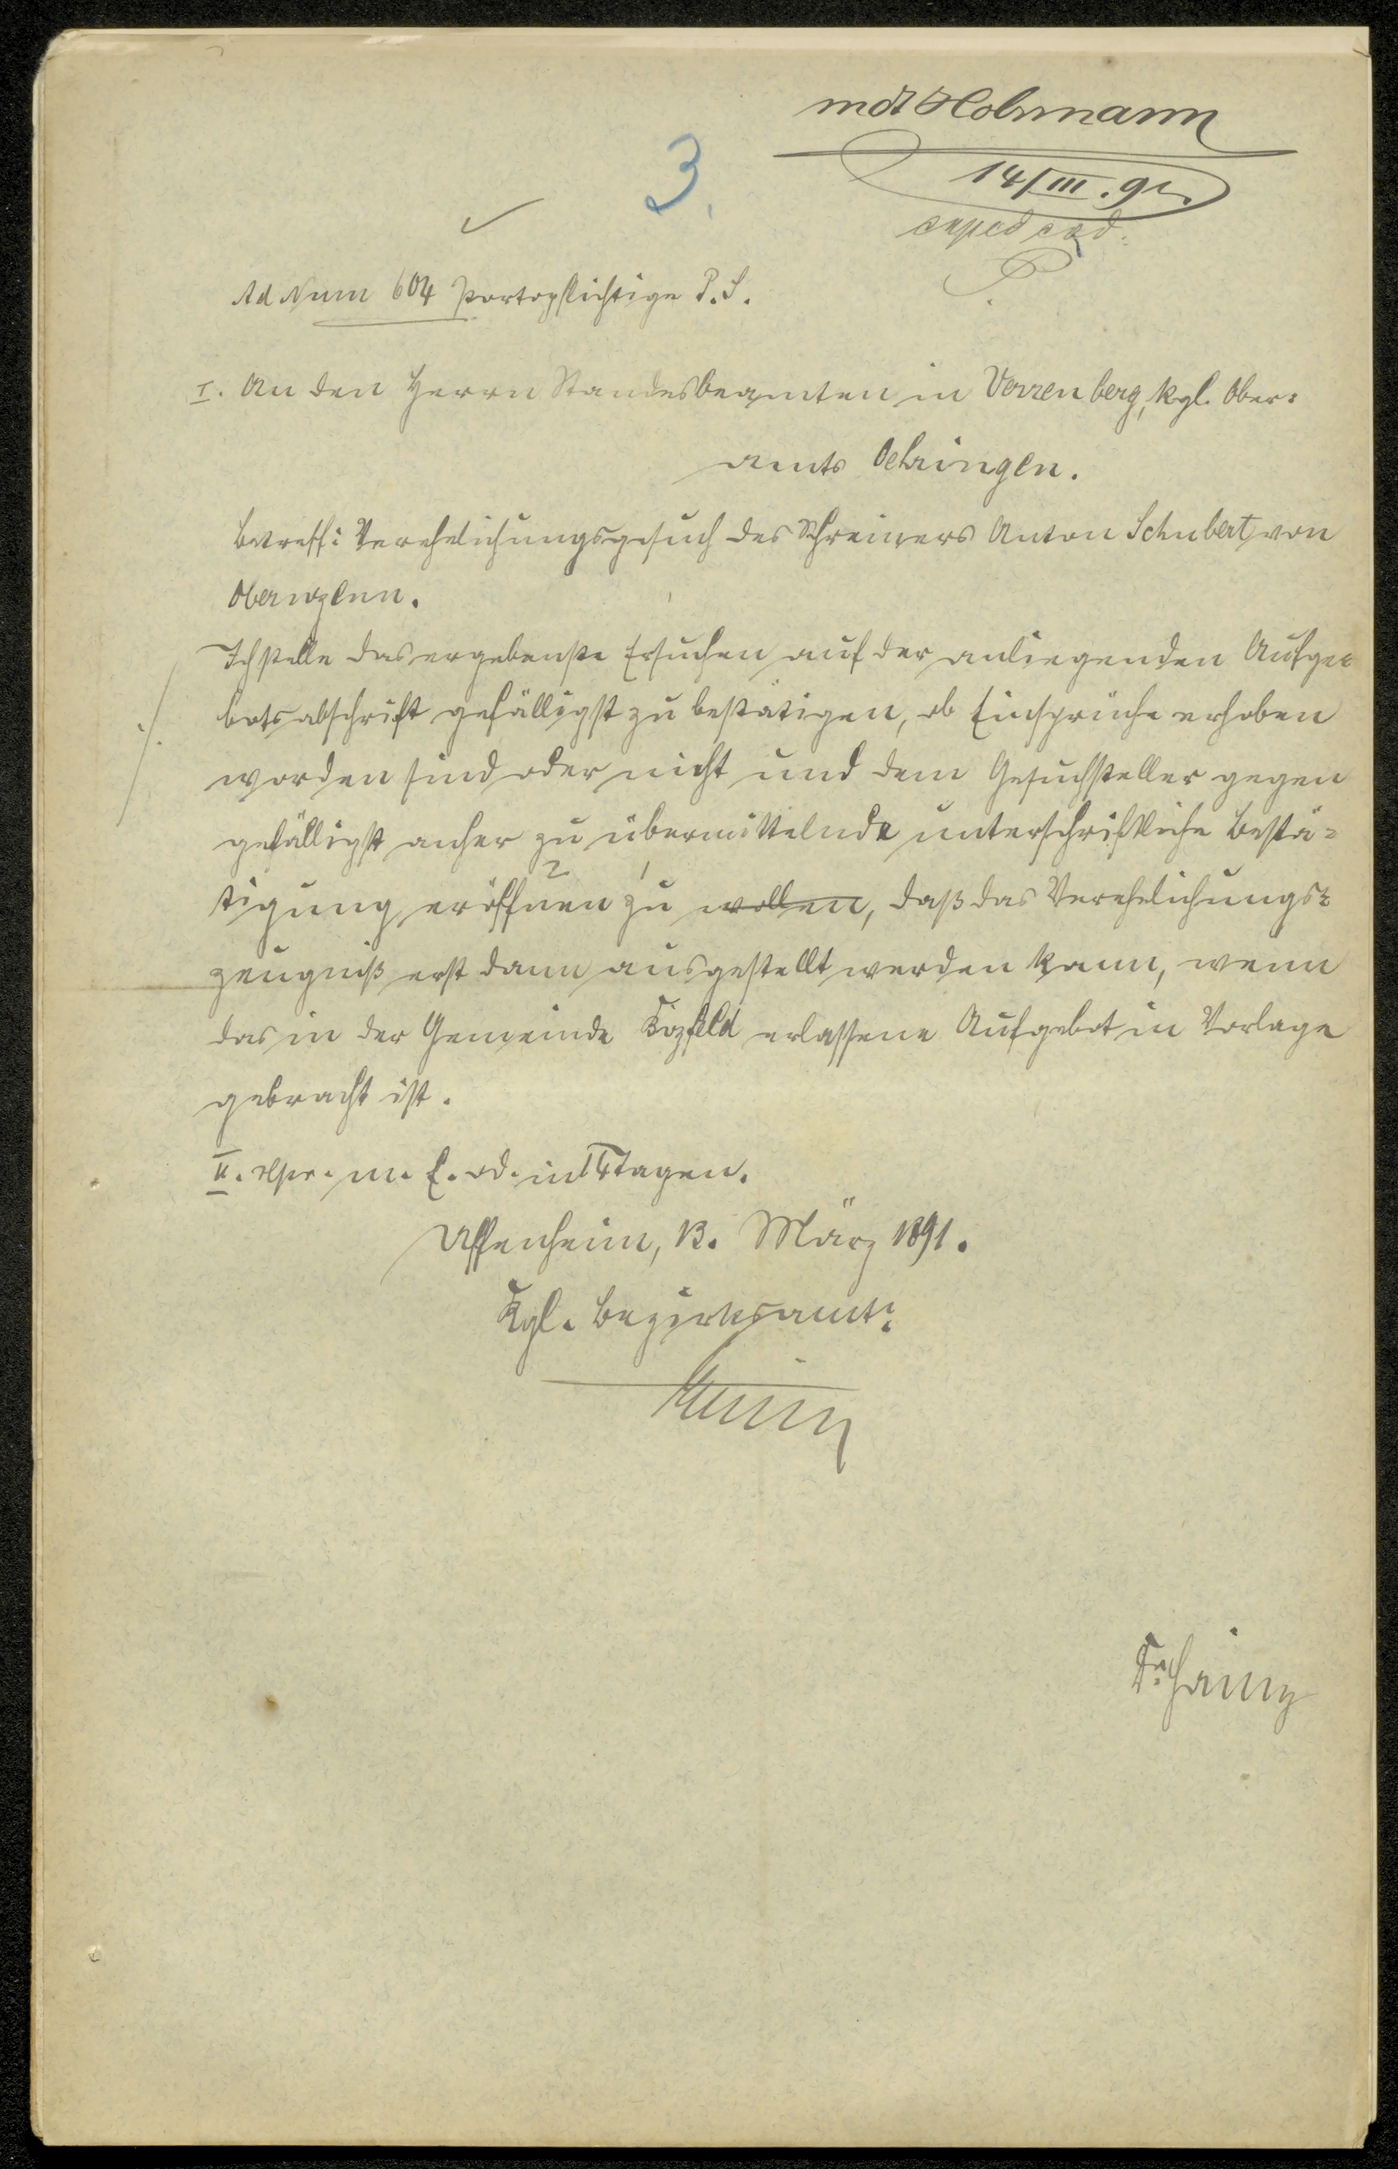 mdt Hohmann
14/III. 91.
exped eod.
3.
Ad Num 604 portopflichtige P. S.
I. An den Herrn Standesbeamten in Verrenberg, kgl. Ober=
amts Oehringen.
Betreff: Verehelichungsgesuch des Schreiners Anton Schubert, von
Obernzenn.
Ich stelle das ergebenste Ersuchen auf der anliegenden Aufge=
botsabschrift gefälligst zu bestätigen, ob Einsprüche erhoben
./.
worden sind oder nicht und dem Gesuchsteller gegen
gefälligst anher zu übermittelnde unterschriftliche Bestä=
tigung eröffnen zu wollen, daß das Verehelichungs=
zeugniß erst dann ausgestellt werden kann, wenn
das in der Gemeinde erlassene Aufgebot in Vorlage
gebracht ist.
II. m. E. od. in 14 Tagen.
Uffenheim, 13. März 1891.
Kgl. Bezirksamt: